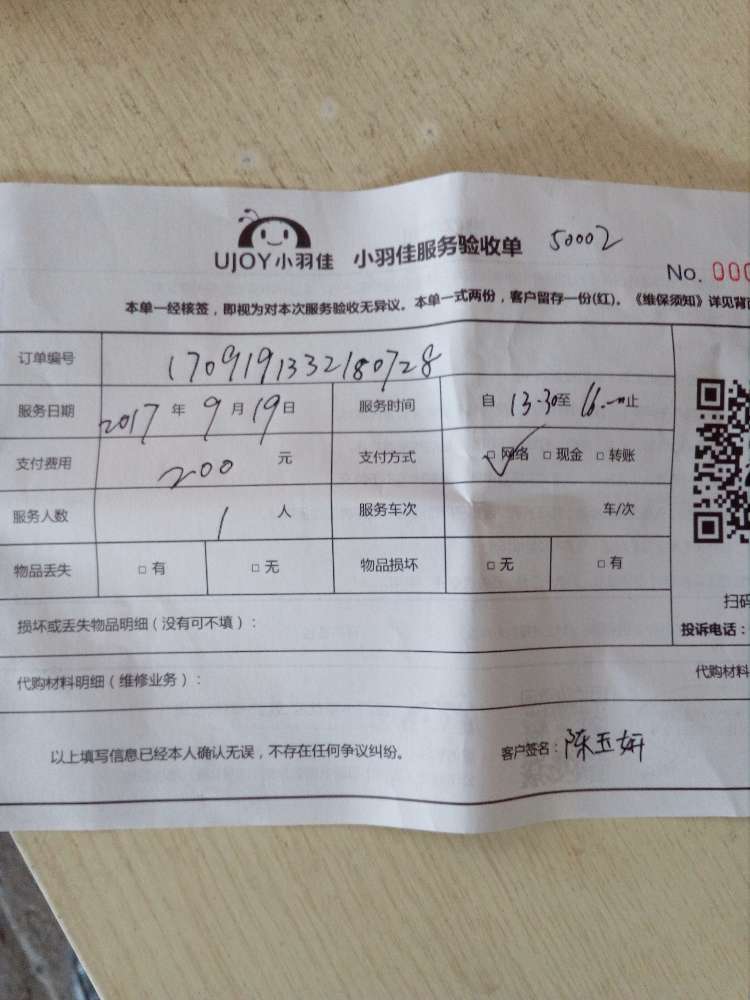 UJOY小羽佳 小羽佳服务验收单 50002
No. 000
本单一经核签，即视为对本次服务验收无异议。本单一式两份，客户留存一份(红)。《维保须知》详见背
订单编号 1709191332180728
服务日期 2017 年 9 月 19 日 服务时间 自 13.30 至 16.一止
支付费用 200 元 支付方式 ✓□ 网络 □ 现金 □ 转账
服务人数 1 人 服务车次 车/次
物品丢失 □ 有 □ 无 物品损坏 □ 无 □ 有
扫码
损坏或丢失物品明细（没有可不填）：
投诉电话：
代购材料明细（维修业务）： 代购材料
以上填写信息已经本人确认无误，不存在任何争议纠纷。 客户签名：陈玉妍